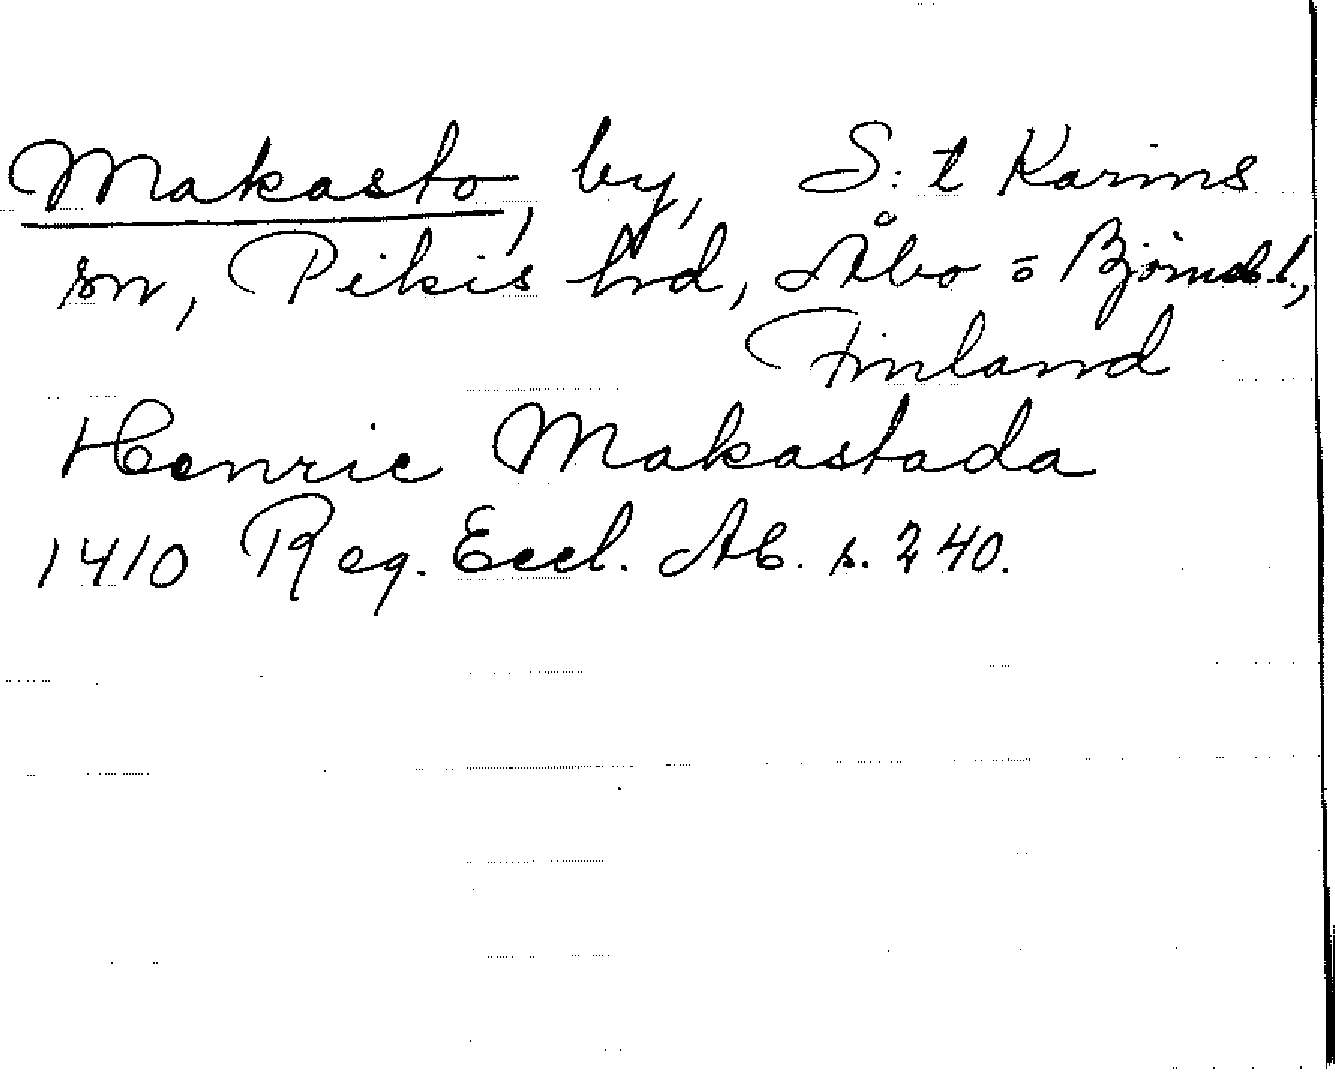 Makasto, by, S:t Karins
sn, Pikis hd, Åbo o Björneb.l.,
Finland
Henric Makastada
1410 Reg. Eccl. Ab. s. 240.